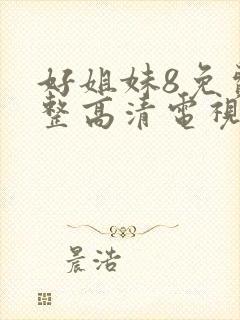 好姐妹8免
整高清電視
晨浩